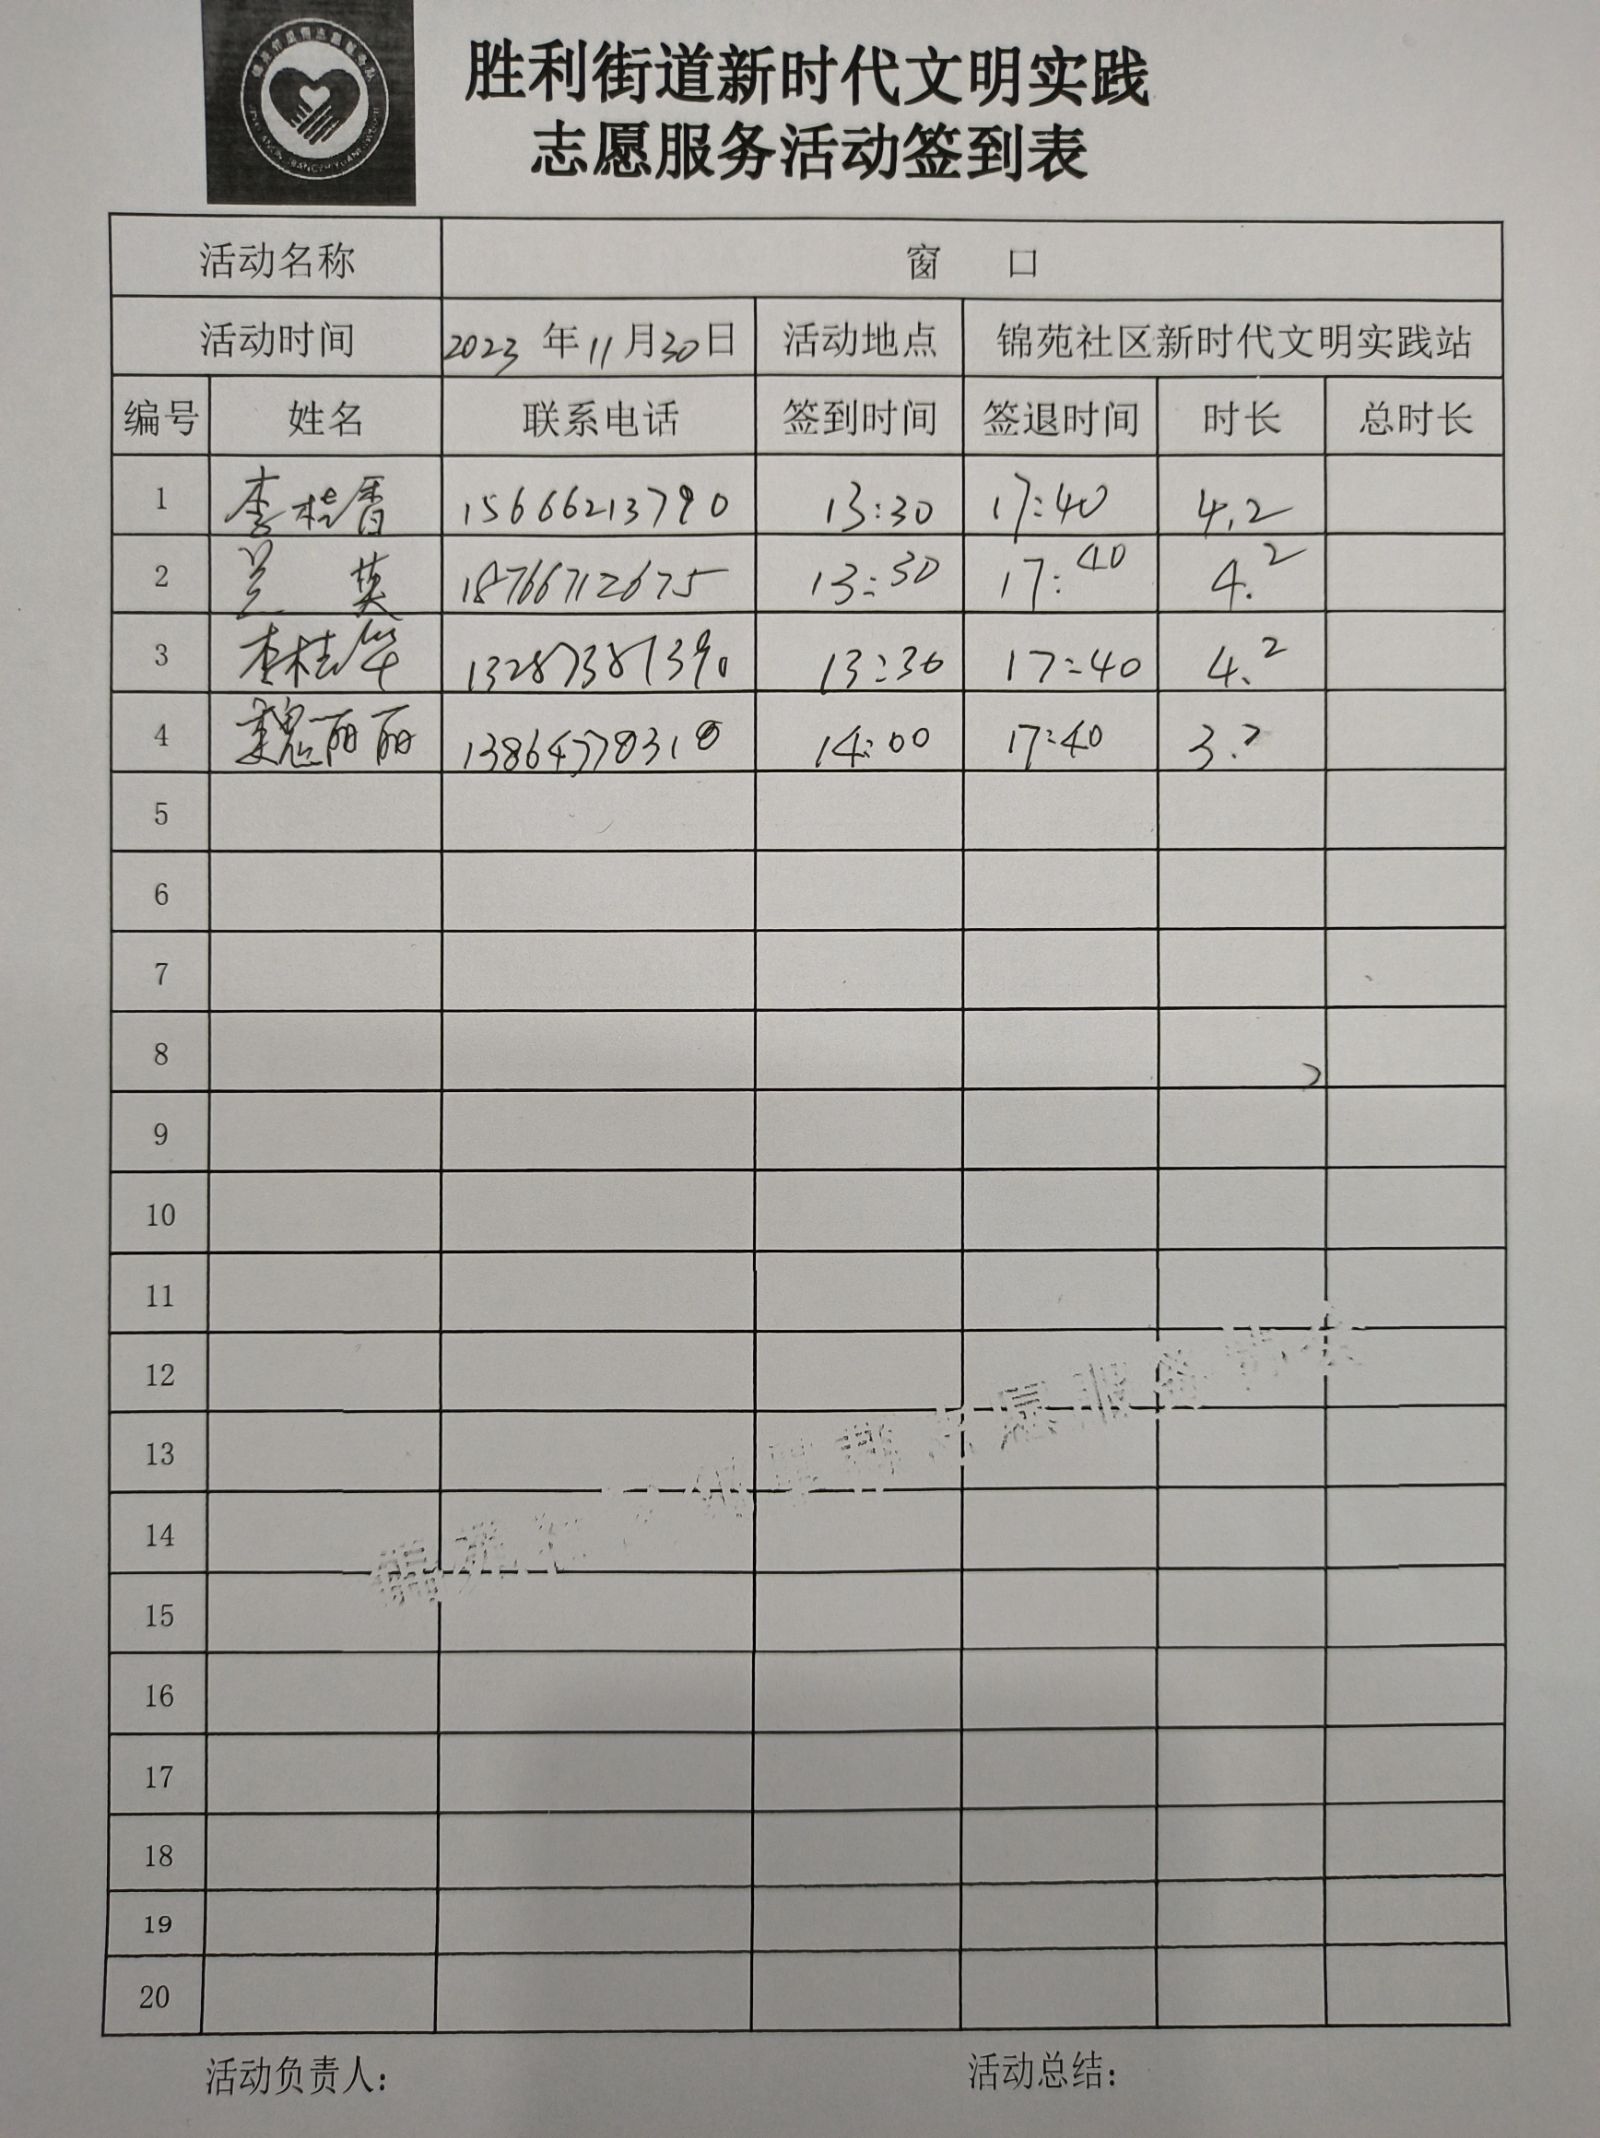 胜利街道新时代文明实践
志愿服务活动签到表
活动名称 窗 口
活动时间 2023 年 11 月 30 日 活动地点 锦苑社区新时代文明实践站
编号 姓名 联系电话 签到时间 签退时间 时长 总时长
1 李桂香 15666213790 13:30 17:40 4.2
2 兰英 18766712675 13:30 17:40 4.2
3 李桂华 13:30 17:40 4.2
4 魏丽丽 13864770318 14:00 17:40 3.7
5
6
7
8
9
10
11
12
13
14
15
16
17
18
19
20
锦苑社区邻里帮志愿服务协会
活动负责人: 活动总结: